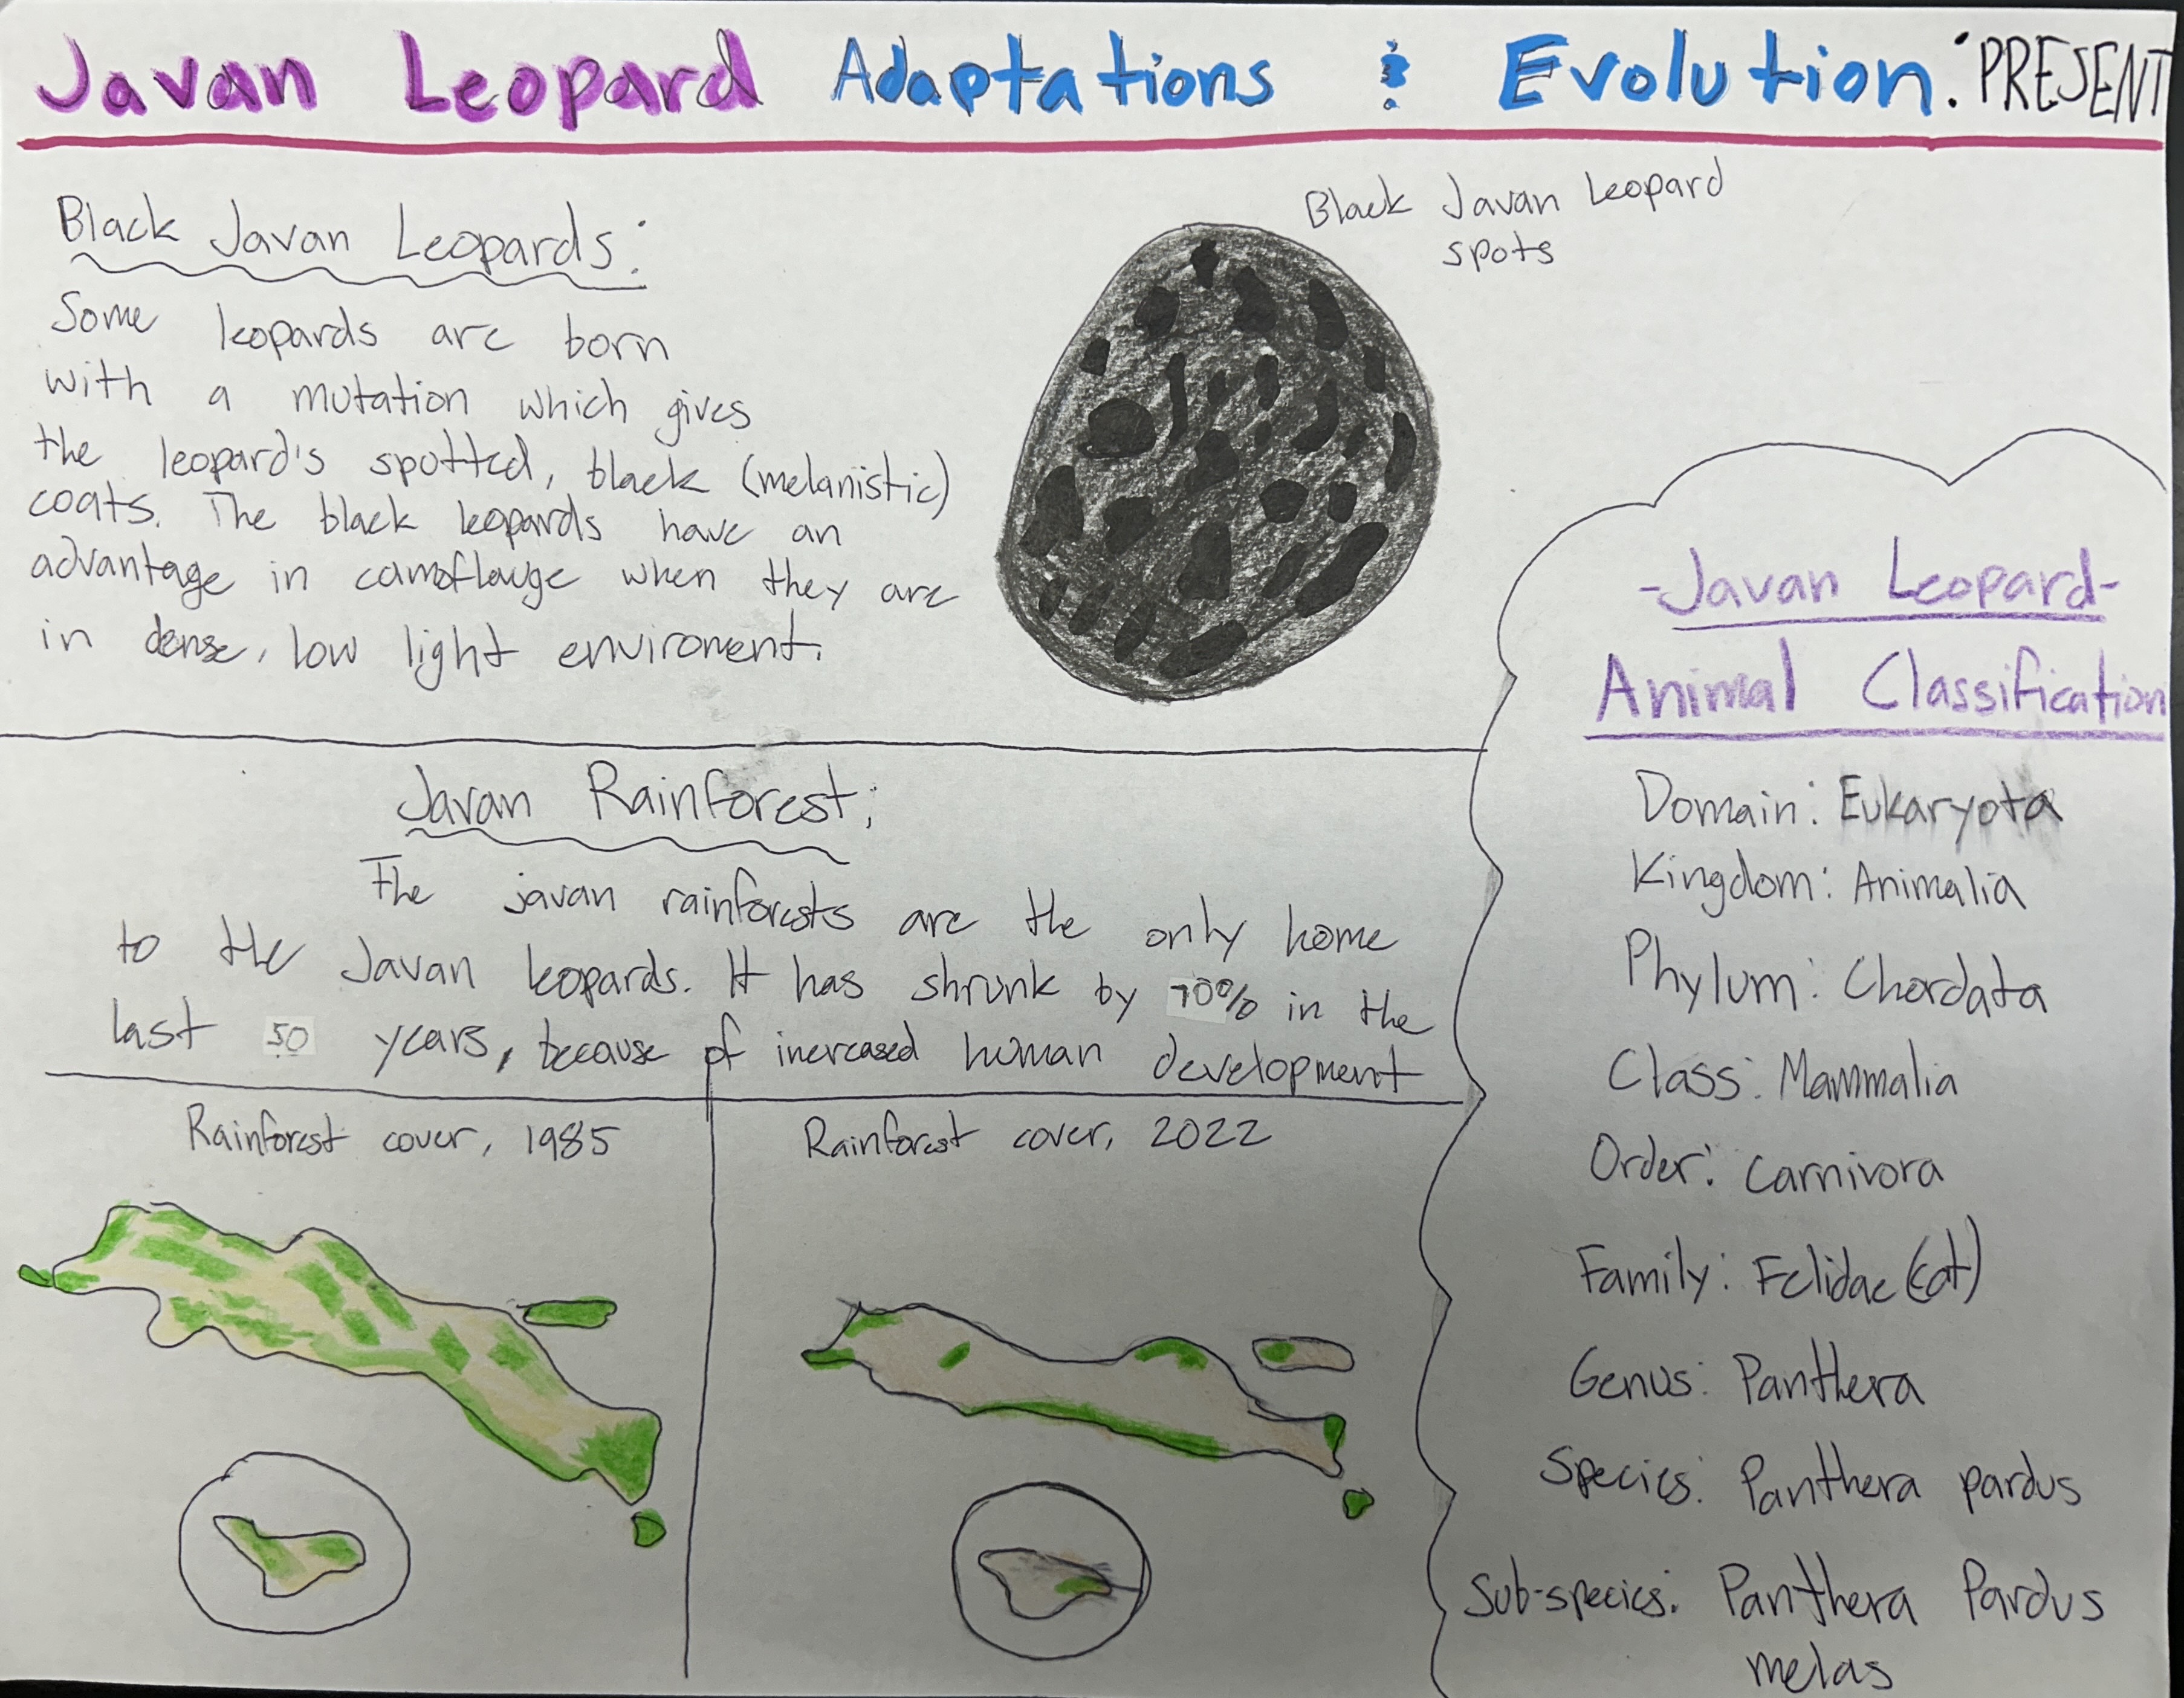 Javan Leopard Adaptations & Evolution: PRESENT
Black Javan Leopards:
Some leopards are born
with a mutation which gives
the leopard's spotted, black (melanistic)
coats. The black leopards have an
advantage in camoflauge when they are
in dense, low light enviroment.
Black Javan Leopard
spots
Javan Rainforest:
The javan rainforests are the only home
to the Javan leopards. It has shrunk by 70% in the
last 50 years, because of increased human development
Rainforest cover, 1985
Rainforest cover, 2022
-Javan Leopard-
Animal Classification
Domain: Eukaryota
Kingdom: Animalia
Phylum: Chordata
Class: Mammalia
Order: Carnivora
Family: Felidae (cat)
Genus: Panthera
Species: Panthera pardus
Sub-species: Panthera Pardus
melas